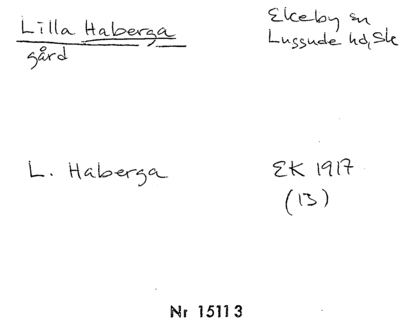 Lilla Haberga
gård
Ekeby sn
Luggude hd, Sk
L. Haberga
EK 1917
(13)
Nr 15113